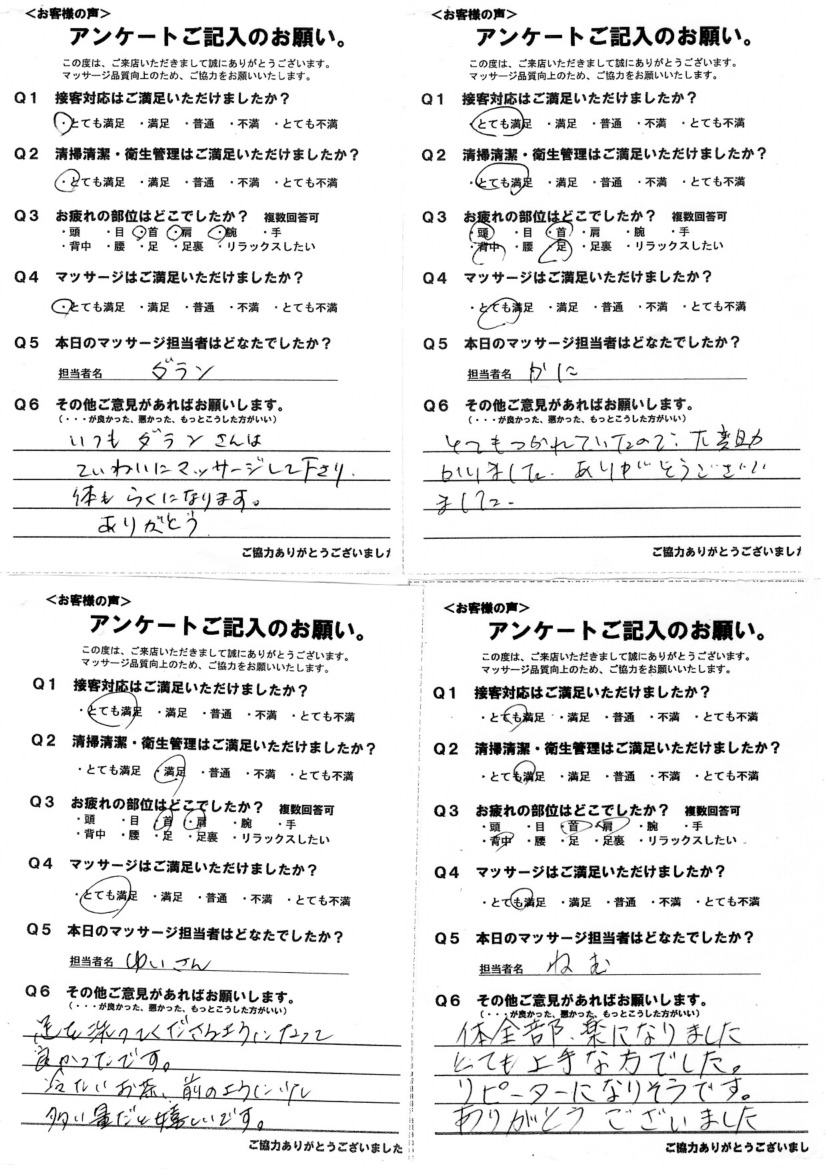 <お客様の声>
アンケートご記入のお願い。
この度は、ご来店いただきまして誠にありがとうございます。
マッサージ品質向上のため、ご協力をお願いいたします。
Q1 接客対応はご満足いただけましたか？
・とても満足 ・満足 ・普通 ・不満 ・とても不満
Q2 清掃清潔・衛生管理はご満足いただけましたか？
・とても満足 ・満足 ・普通 ・不満 ・とても不満
Q3 お疲れの部位はどこでしたか？ 複数回答可
・頭 ・目 ・首 ・肩 ・腕 ・手
・背中 ・腰 ・足 ・足裏 ・リラックスしたい
Q4 マッサージはご満足いただけましたか？
・とても満足 ・満足 ・普通 ・不満 ・とても不満
Q5 本日のマッサージ担当者はどなたでしたか？
担当者名 ダラン
Q6 その他ご意見があればお願いします。
（・・・が良かった、悪かった、もっとこうした方がいい）
いつも ダラン さんは
ていねいにマッサージして下さり、
体も らくになります。
ありがとう
ご協力ありがとうございました
<お客様の声>
アンケートご記入のお願い。
この度は、ご来店いただきまして誠にありがとうございます。
マッサージ品質向上のため、ご協力をお願いいたします。
Q1 接客対応はご満足いただけましたか？
・とても満足 ・満足 ・普通 ・不満 ・とても不満
Q2 清掃清潔・衛生管理はご満足いただけましたか？
・とても満足 ・満足 ・普通 ・不満 ・とても不満
Q3 お疲れの部位はどこでしたか？ 複数回答可
・頭 ・目 ・首 ・肩 ・腕 ・手
・背中 ・腰 ・足 ・足裏 ・リラックスしたい
Q4 マッサージはご満足いただけましたか？
・とても満足 ・満足 ・普通 ・不満 ・とても不満
Q5 本日のマッサージ担当者はどなたでしたか？
担当者名 かに
Q6 その他ご意見があればお願いします。
（・・・が良かった、悪かった、もっとこうした方がいい）
とてもつかれていたので、大変助
かりました。ありがとうござい
ました。
ご協力ありがとうございました
<お客様の声>
アンケートご記入のお願い。
この度は、ご来店いただきまして誠にありがとうございます。
マッサージ品質向上のため、ご協力をお願いいたします。
Q1 接客対応はご満足いただけましたか？
・とても満足 ・満足 ・普通 ・不満 ・とても不満
Q2 清掃清潔・衛生管理はご満足いただけましたか？
・とても満足 ・満足 ・普通 ・不満 ・とても不満
Q3 お疲れの部位はどこでしたか？ 複数回答可
・頭 ・目 ・首 ・肩 ・腕 ・手
・背中 ・腰 ・足 ・足裏 ・リラックスしたい
Q4 マッサージはご満足いただけましたか？
・とても満足 ・満足 ・普通 ・不満 ・とても不満
Q5 本日のマッサージ担当者はどなたでしたか？
担当者名 ゆいさん
Q6 その他ご意見があればお願いします。
（・・・が良かった、悪かった、もっとこうした方がいい）
足を洗ってくださるようになって
良かったです。
冷たいお茶、前のように少し
多い量だと嬉しいです。
ご協力ありがとうございました
<お客様の声>
アンケートご記入のお願い。
この度は、ご来店いただきまして誠にありがとうございます。
マッサージ品質向上のため、ご協力をお願いいたします。
Q1 接客対応はご満足いただけましたか？
・とても満足 ・満足 ・普通 ・不満 ・とても不満
Q2 清掃清潔・衛生管理はご満足いただけましたか？
・とても満足 ・満足 ・普通 ・不満 ・とても不満
Q3 お疲れの部位はどこでしたか？ 複数回答可
・頭 ・目 ・首 ・肩 ・腕 ・手
・背中 ・腰 ・足 ・足裏 ・リラックスしたい
Q4 マッサージはご満足いただけましたか？
・とても満足 ・満足 ・普通 ・不満 ・とても不満
Q5 本日のマッサージ担当者はどなたでしたか？
担当者名 ねむ
Q6 その他ご意見があればお願いします。
（・・・が良かった、悪かった、もっとこうした方がいい）
体全部、楽になりました
とても上手な方でした。
リピーターになりそうです。
ありがとうございました
ご協力ありがとうございまし